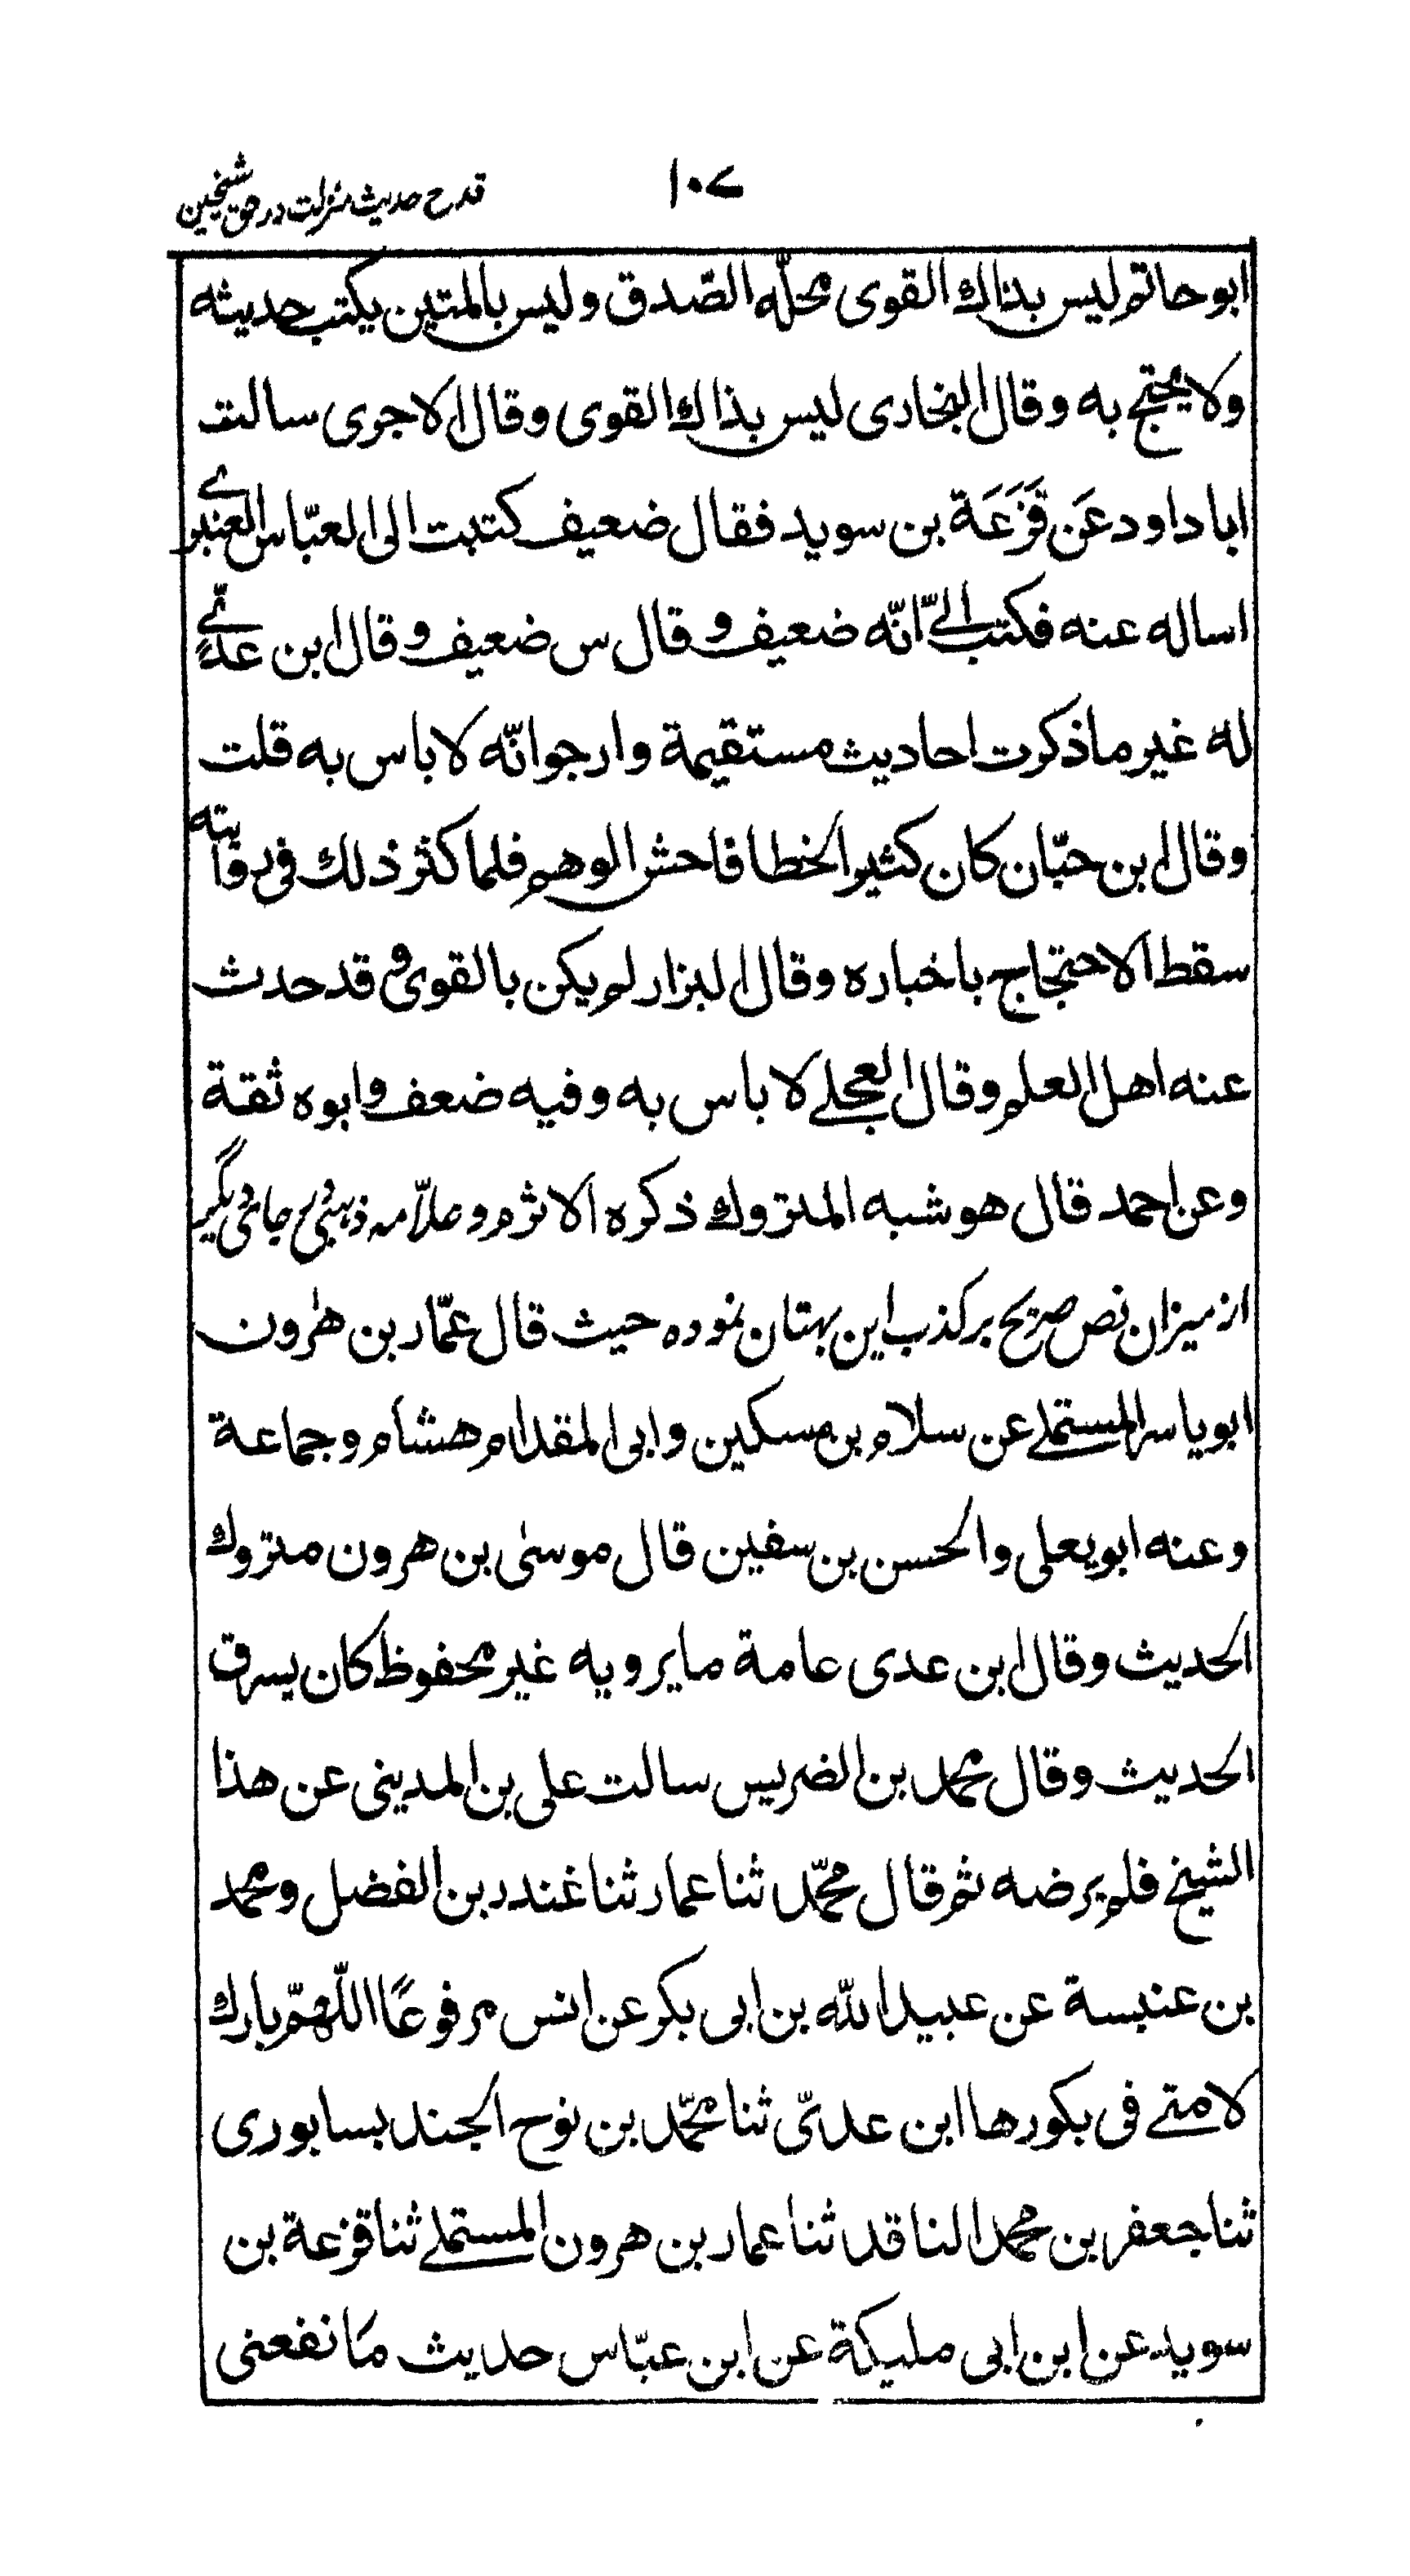 ۱۰۷ قدح حدیث منزلت در حق شیخین
ابو حاتم ليس بذاك القوى محلّه الصّدق وليس بالمتين يكتب حديثه
ولا يحتج به وقال البخارى ليس بذاك القوى وقال الاجرى سالت
ابا داود عَن قَزَعَة بن سويد فقال ضعيف كتبت الى العبّاس العنبرے
اساله عنه فكتب الىّ انّه ضعيف وقال س ضعيف وقال ابن عدىّ
له غير ما ذكرت احاديث مستقيمة وارجو انّه لا باس به قلت
وقال ابن حبّان كان كثير الخطا فاحش الوهم فلما كثر ذلك فى روايته
سقط الاحتجاج باخباره وقال البزار لم يكن بالقوى وقد حدث
عنه اهل العلم وقال العجلے لا باس به وفيه ضعف وابوه ثقة
وعن احمد قال هو شبه المتروك ذكره الاثرم و علاّمه ذہبی جائی دیگر
از میزان نص صریح بر کذب این بہتان نموده حيث قال عمّار بن هٰرون
ابو ياسر المستملے عن سلام بن مسكين وابى المقدام هشام وجماعة
وعنه ابو يعلى والحسن بن سفين قال موسىٰ بن هرون متروك
الحديث وقال ابن عدى عامة ما يرويه غير محفوظ كان يسرق
الحديث وقال محمد بن الضريس سالت على بن المدينى عن هذا
الشيخ فلم يرضه ثم قال محمّد ثنا عمار ثنا غندر بن الفضل ومحمد
بن عنبسة عن عبيد اللّه بن ابى بكر عن انس مرفوعًا اللّهمّ بارك
لامتے فى بكورها ابن عدىّ ثنا محمّد بن نوح الجنديسابورى
ثنا جعفر بن محمد الناقد ثنا عمار بن هرون المستملے ثنا قزعة بن
سويد عن ابن ابى مليكة عن ابن عبّاس حديث مَا نفعنى